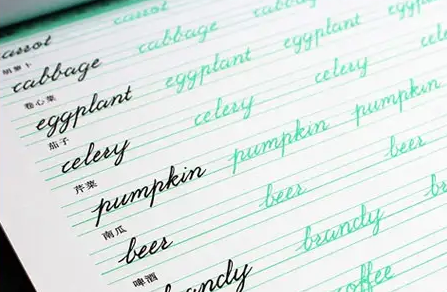 carrot carrot
胡萝卜
cabbage cabbage cabbage
卷心菜
eggplant eggplant eggplant
茄子
celery celery celery celery
芹菜
pumpkin pumpkin pumpkin
南瓜
beer beer beer
啤酒
brandy brandy
coffee